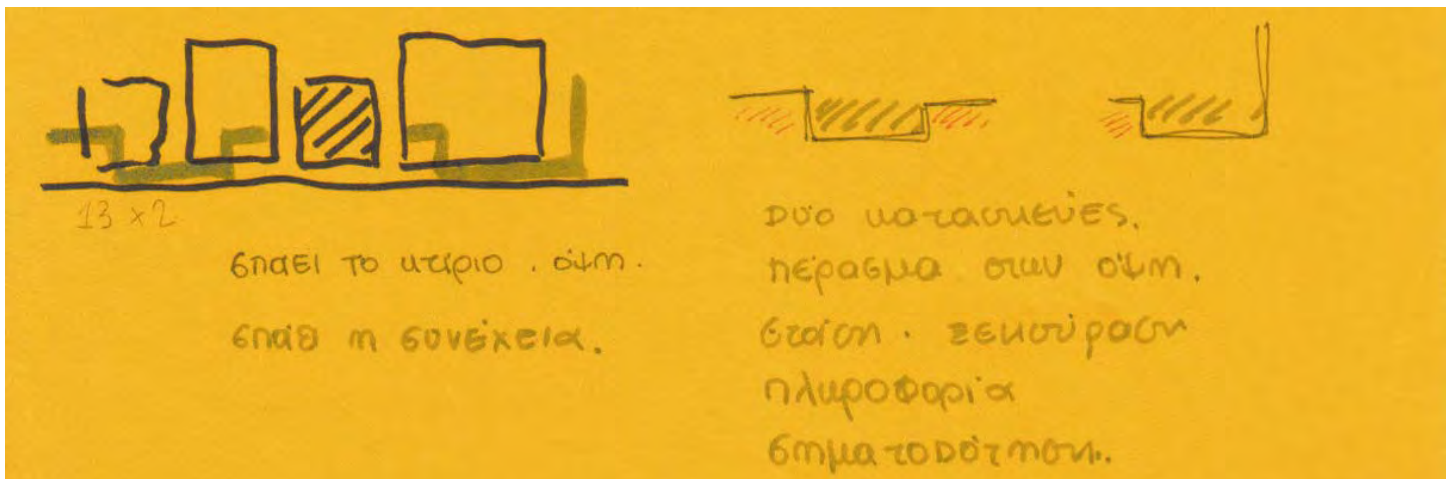 13 x 2
σπάει το κτίριο . όψη.
σπάει η συνέχεια.
Δύο κατασκευές.
πέρασμα στην όψη.
στάση . ξεκούραση
πληροφορία
σηματοδότηση.